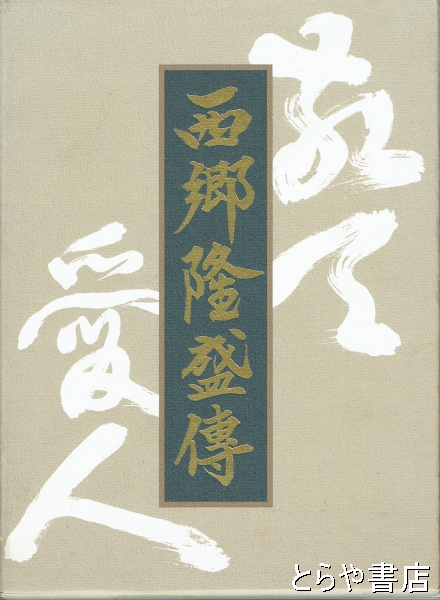 敬天
愛人
西郷隆盛傳
とらや書店